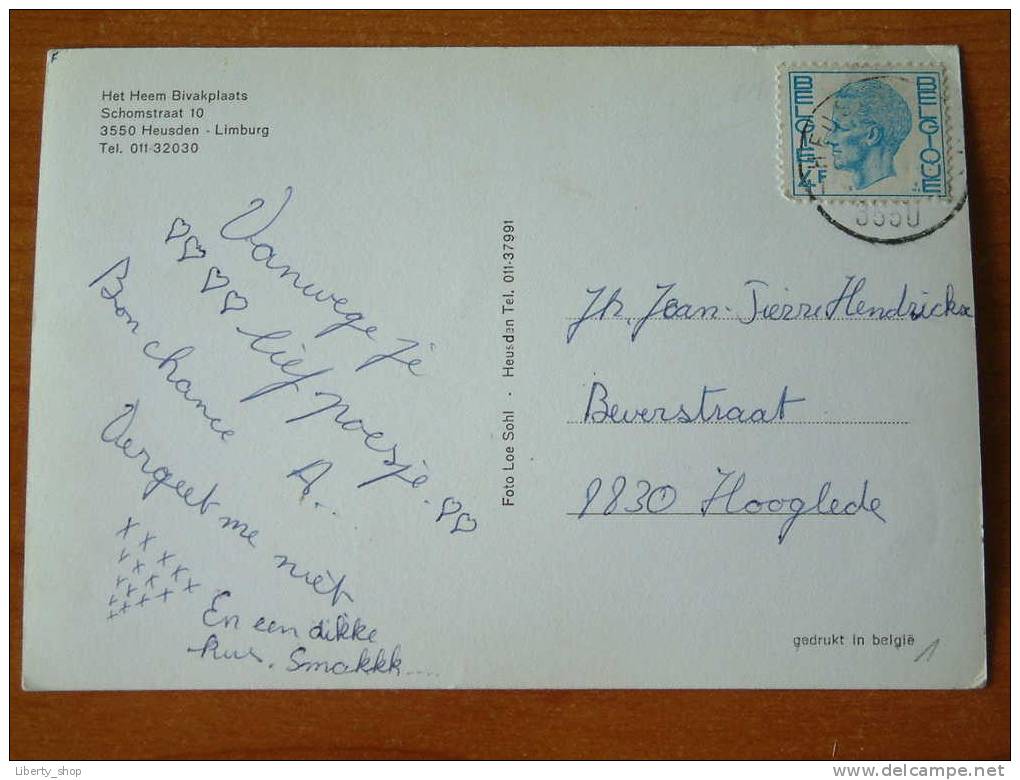 Het Heem Bivakplaats
Schomstraat 10
3550 Heusden - Limburg
Tel. 011-32030
BELGIE
4F
BELGIQUE
3550
Vanwege je
lief poesje.
Bon chance
A...
Vergeet me niet
x x x x x
En een dikke
kus. Smakkk....
Foto Loe Sohl · Heusden Tel. 011-37991
Jh. Jean-Pierre Hendrickx
Beverstraat
8830 Hooglede
gedrukt in belgië
1
Liberty_shop
delcampe.net